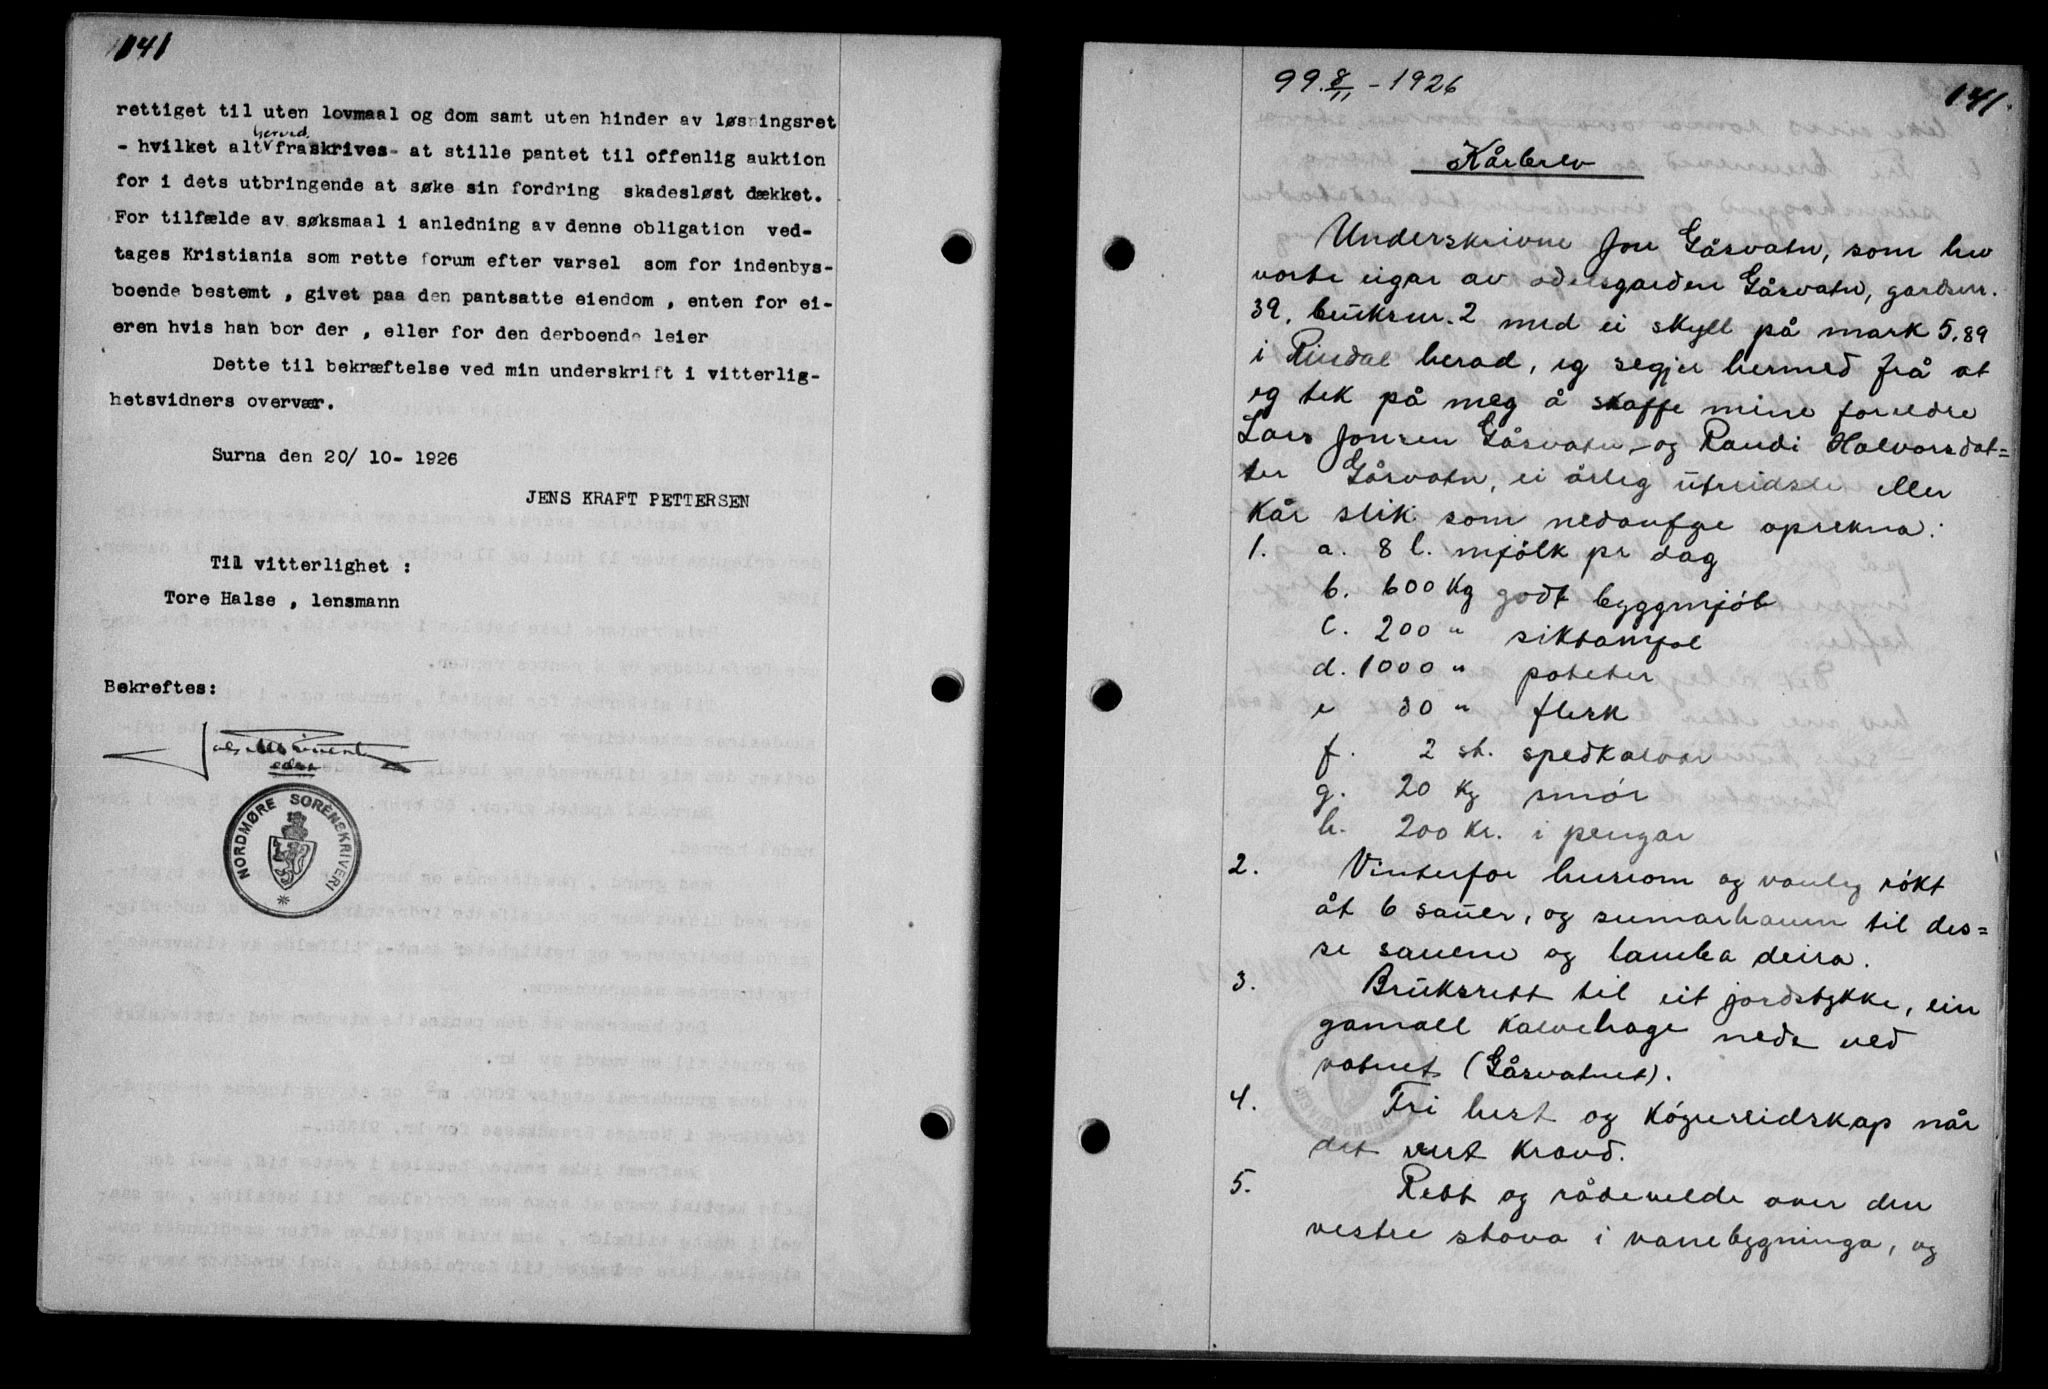 141
rettiget til uten lovmaal og dom samt uten hinder av løsningsret
herved
- hvilket alt fraskrives- at stille pantet til offenlig auktion
for i dets utbringende at søke sin fordring skadesløst dækket.
For tilfælde av søksmaal i anledning av denne obligation ved-
tages Kristiania som rette forum efter varsel som for indenbys-
boende bestemt , givet paa den pantsatte eiendom , enten for ei-
eren hvis han bor der , eller for den derboende leier
Dette til bekræftelse ved min underskrift i vitterlig-
hetsvidners overvær.
Surna den 20/ 10- 1926
JENS KRAFT PETTERSEN
Til vitterlighet :
Tore Halse , lensmann
Bekreftes:
NORDMØRE SORENSKRIVERI
99. 8/11 - 1926
141.
Kårbrev
Underskrivne Jon Gåsvatn, som hev
vorte eigar av odelsgarden Gåsvatn, gardsnr.
39, bruksnr. 2 med ei skyll på mark 5.89
i Rindal herad, eg segjer hermed frå at
eg tek på meg å skaffe mine foreldre
Lars Jonsen Gåsvatn og Randi Halvorsdat=
ter Gåsvatn, ei årleg utreidsle eller
kår slik som nedanfye oprekna:
1. a. 8 l. mjölk pr dag
b. 600 kg godt byggmjöl
c. 200 " siktamjøl
d. 1000 " poteter
e 30 " flesk
f. 2 st. spedkalvar
g. 20 kg smör
h. 200 kr. i pengar
2. Vinterfor husrom og vanleg rökt
åt 6 sauer, og sumarhamn til des=
se sauene og lamba deira.
3. Bruksrett til eit jordstykke, ein
gamall kalvehage nede ved
vatnet (Gåsvatnet).
4. Fri hest og köyrereidskap når
det vert kravd.
5. Rett og rådevelde over den
vestre stova i vånebygninga, og